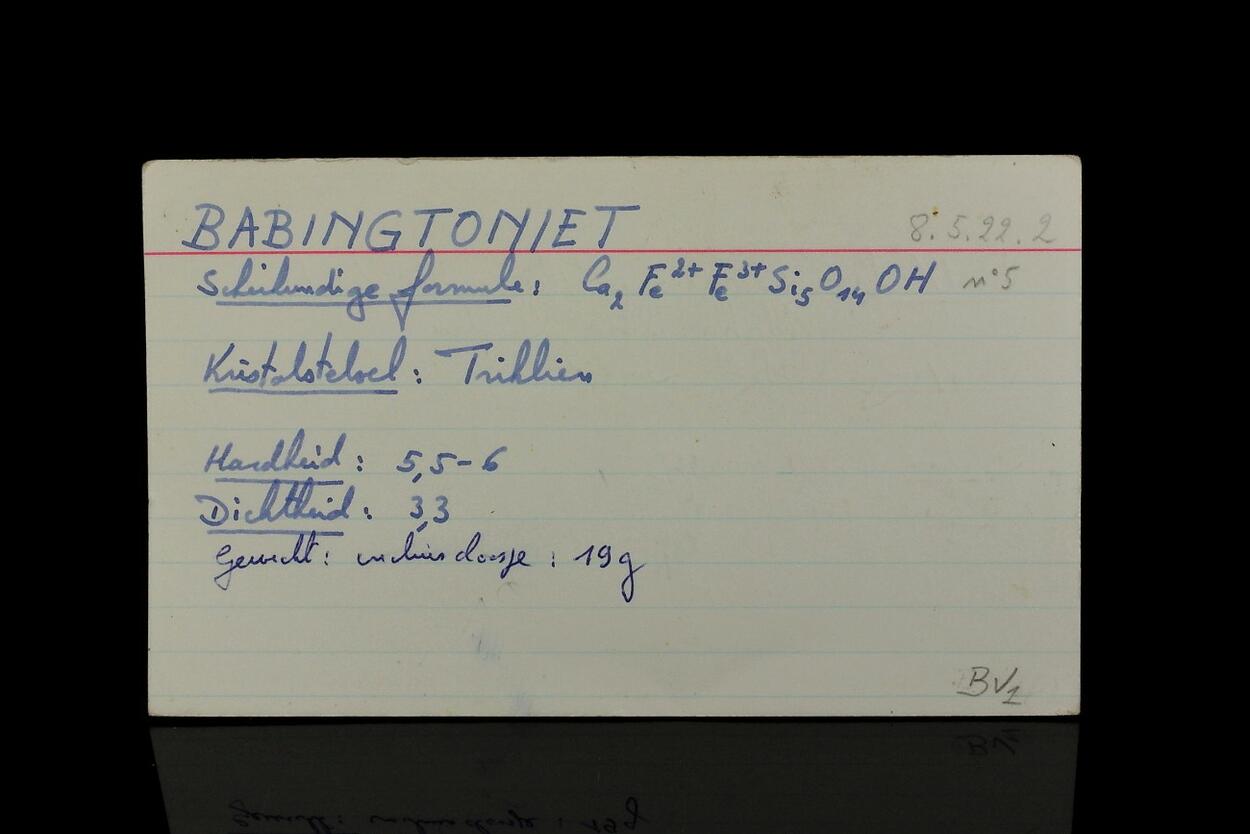 BABINGTONIET 8.5.22.2
Scheikundige formule: Ca₂ Fe²⁺ Fe³⁺ Si₅ O₁₄ OH n°5
Kristalstelsel: Triklien
Hardheid: 5,5-6
Dichtheid: 3,3
Gewicht: doosje: 19g
BV1